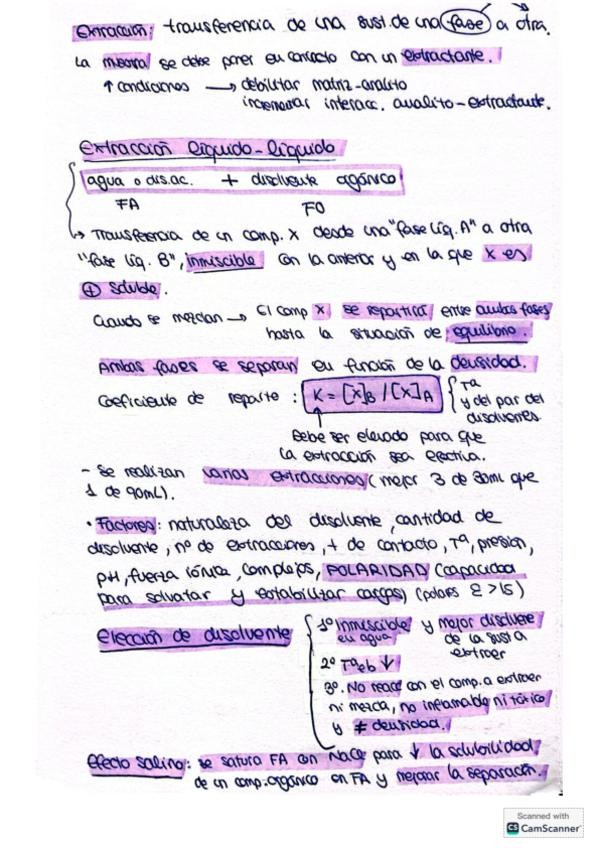 Extracción: transferencia de una sust. de una fase a otra.
La muestra se debe poner en contacto con un extractante.
↑ condiciones → debilitar matriz-analito
incrementar interacc. analito-extractante.
Extracción líquido-líquido
agua o dis.ac. + disolvente orgánico
FA FO
↳ Transferencia de un comp. X desde una "fase líq. A" a otra
"fase líq. B", inmiscible con la anterior y en la que X es
⊕ soluble.
Cuando se mezclan → El comp X se repartirá entre ambas fases
hasta la situación de equilibrio.
Ambas fases se separan en función de la densidad.
Coeficiente de reparto: K = [X]B / [X]A { Tª
y del par del
disolventes.
Debe ser elevado para que
la extracción sea efectiva.
- Se realizan varias extracciones (mejor 3 de 30mL que
1 de 90mL).
· Factores: naturaleza del disolvente, cantidad de
disolvente, nº de extracciones, t de contacto, Tª, presión,
pH, fuerza iónica, complejos, POLARIDAD (capacidad
para solvatar y estabilizar cargas) (polares ε > 15)
Elección de disolvente
1º Inmiscible y mejor disolvere
en agua de la sust a
extraer
2º Tªeb ↓
3º. No reacc con el comp. a extraer
ni mezcla, no inflamable ni tóxico
y ≠ densidad.
Efecto salino: se satura FA con NaCl para ↓ la solubilidad
de un comp. orgánico en FA y mejorar la separación.
Scanned with
CS CamScanner